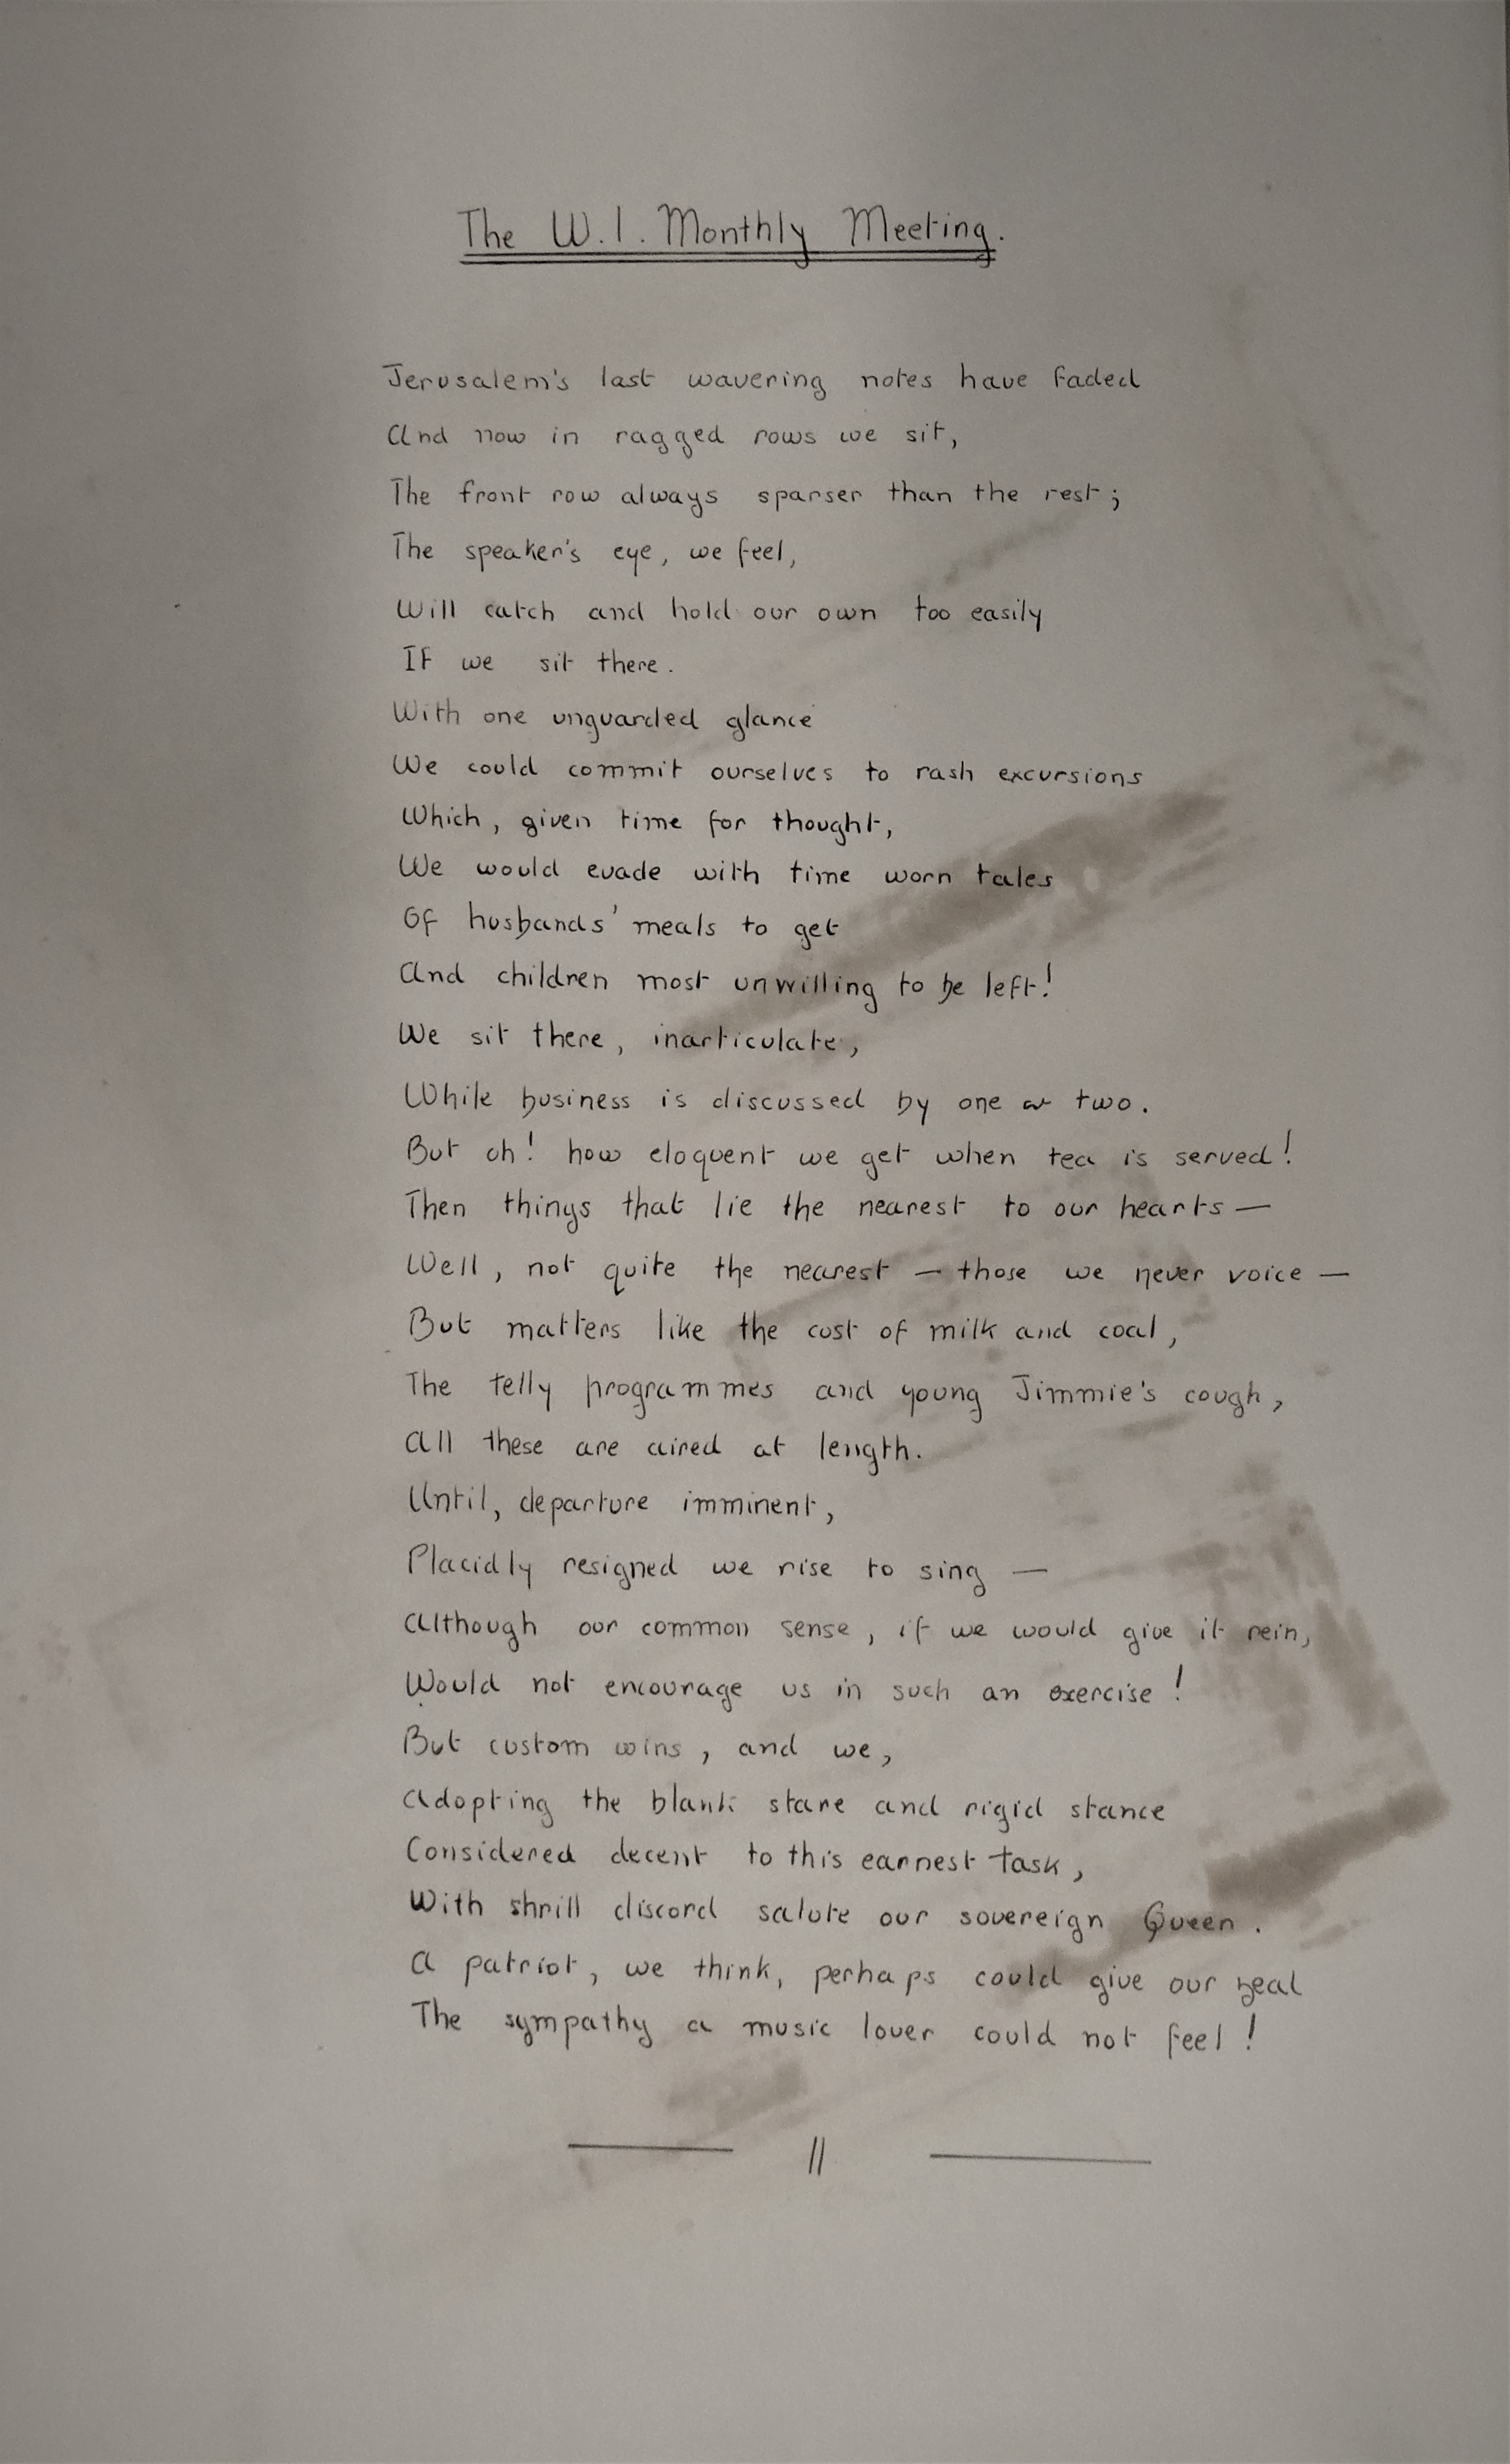 The W.I. Monthly Meeting.
Jerusalem's last wavering notes have faded
And now in ragged rows we sit,
The front row always sparser than the rest;
The speaker's eye, we feel,
Will catch and hold our own too easily
If we sit there.
With one unguarded glance
We could commit ourselves to rash excursions
Which, given time for thought,
We would evade with time worn tales
Of husbands' meals to get
And children most unwilling to be left!
We sit there, inarticulate,
While business is discussed by one or two.
But oh! how eloquent we get when tea is served!
Then things that lie the nearest to our hearts —
Well, not quite the nearest — those we never voice —
But matters like the cost of milk and coal,
The telly programmes and young Jimmie's cough,
All these are aired at length.
Until, departure imminent,
Placidly resigned we rise to sing —
Although our common sense, if we would give it rein,
Would not encourage us in such an exercise!
But custom wins, and we,
Adopting the blank stare and rigid stance
Considered decent to this earnest task,
With shrill discord salute our sovereign Queen.
A patriot, we think, perhaps could give our zeal
The sympathy a music lover could not feel!
— || —